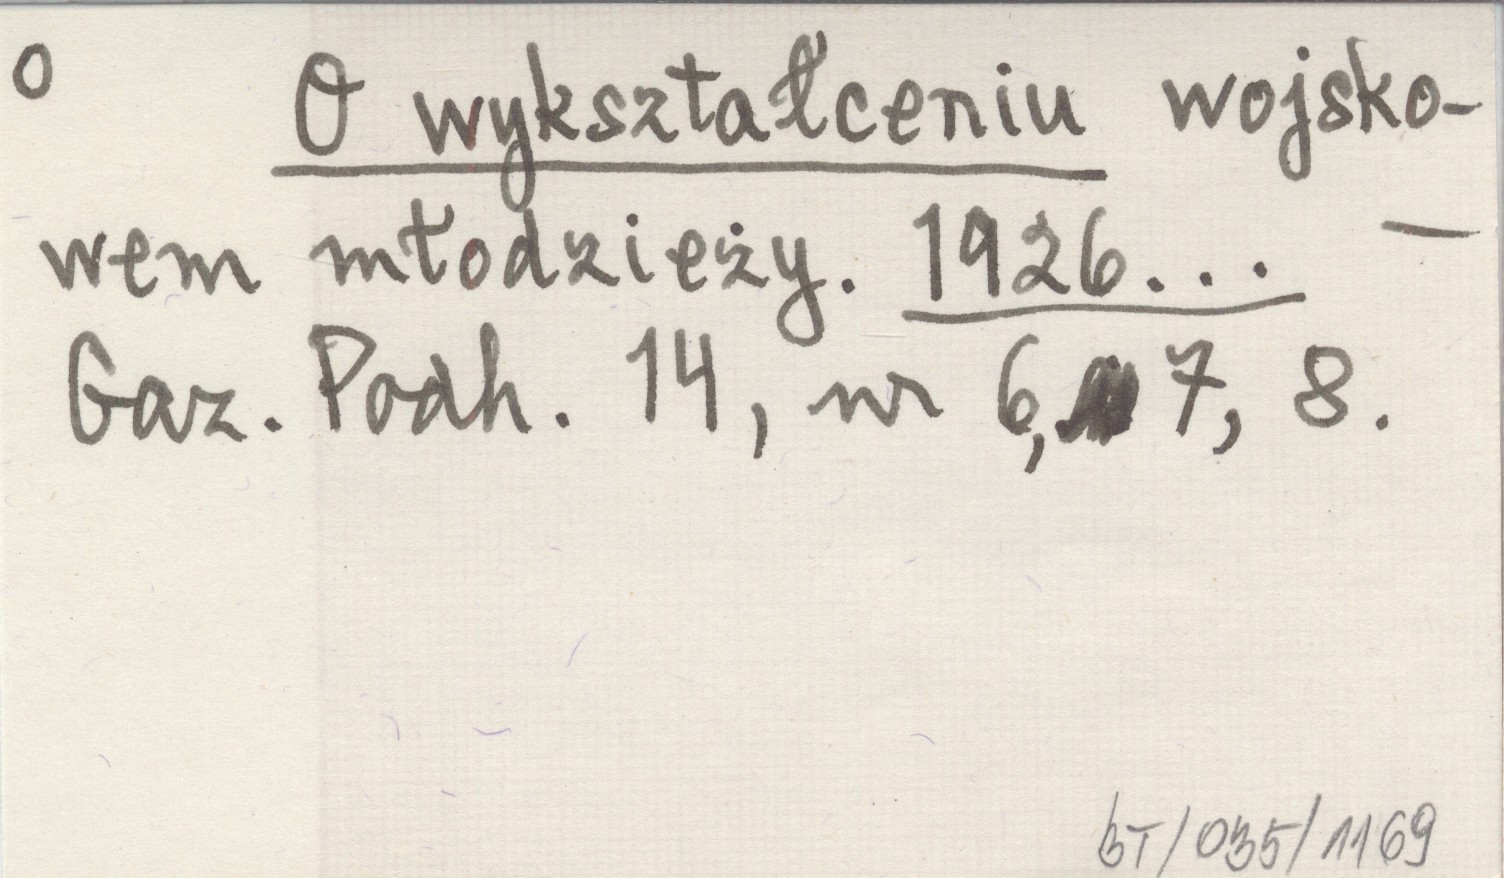 O
O wykształceniu wojsko-
wem młodzieży. 1926... —
Gaz. Podh. 14, nr 6, 7, 8.
BT/035/1169